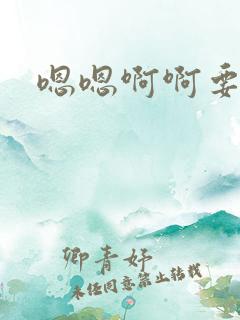 嗯嗯啊啊要
卿青妤
未经同意禁止转载